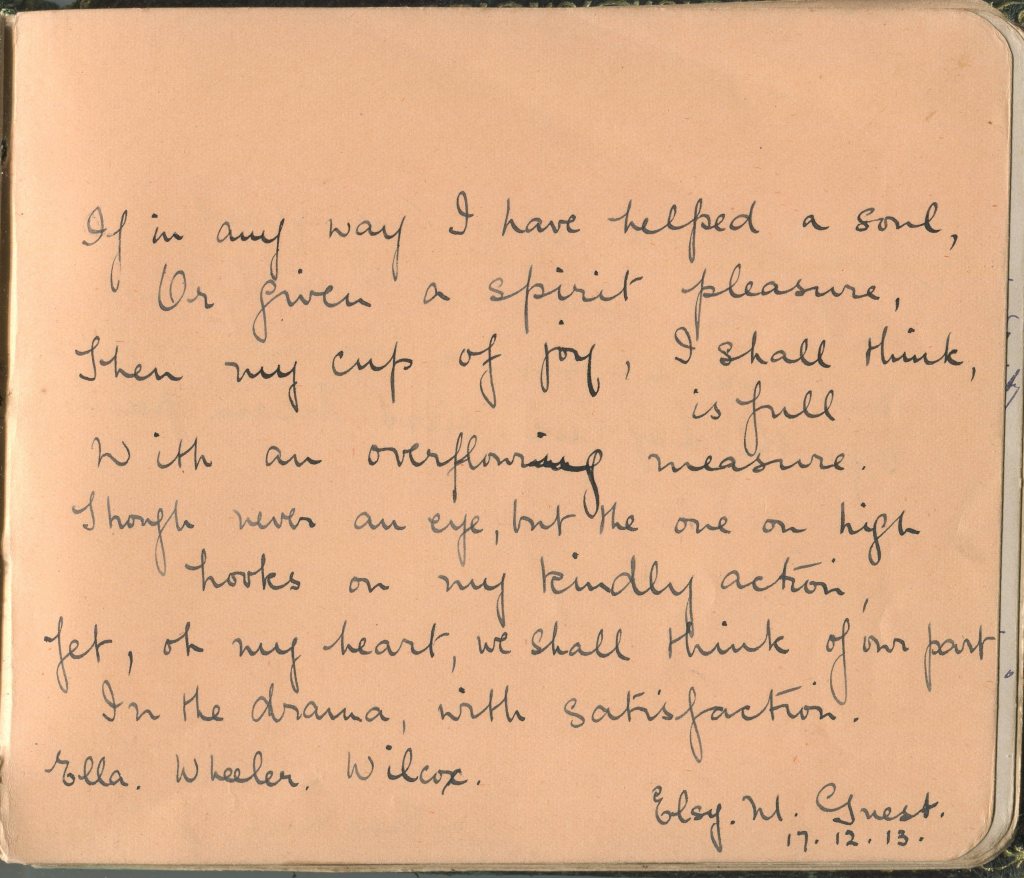 If in any way I have helped a soul,
Or given a spirit pleasure,
Then my cup of joy, I shall think,
is full
With an overflowing measure.
Though never an eye, but the one on high
Looks on my kindly action,
Yet, oh my heart, we shall think of our part
In the drama, with satisfaction.
Ella. Wheeler. Wilcox.
Elsy. M. Guest.
17.12.13.